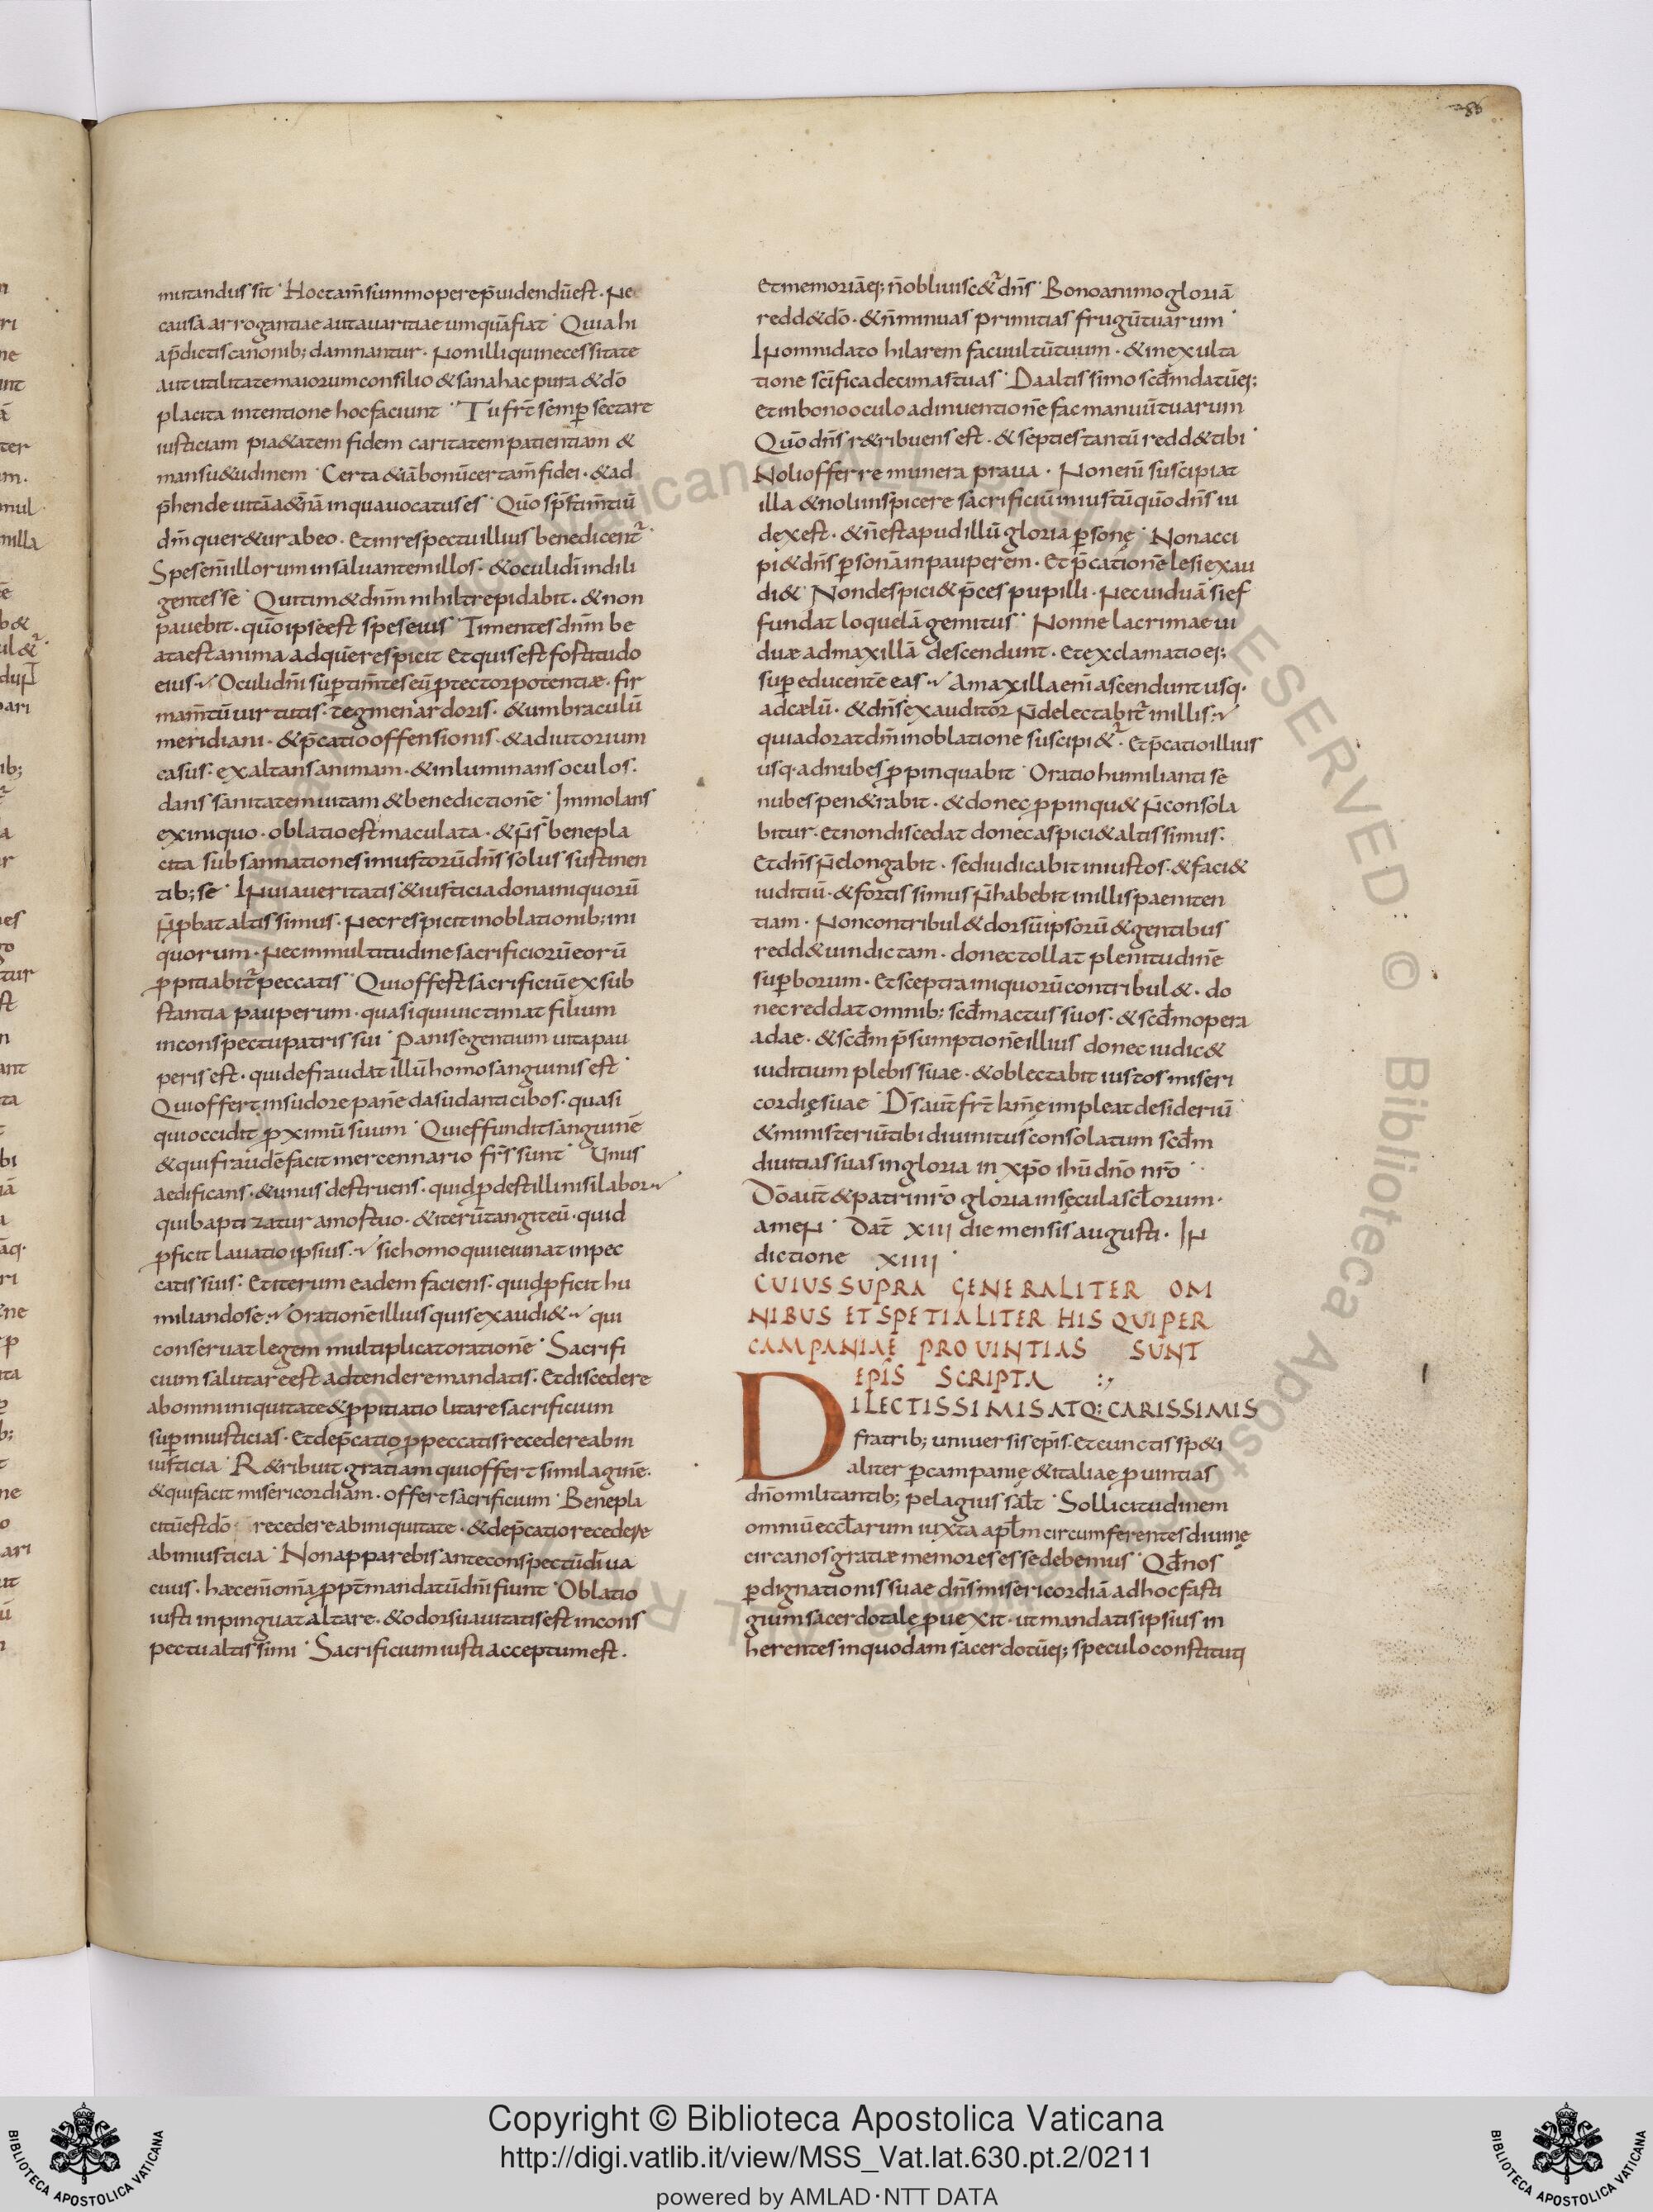 mutandus sit · Hoc tam̄ summopere p̄uidendū est · Ne
causa arrogantiae aut auaritiae umquā fiat · Quia hi
a p̄dictis canonib; damnantur · Non illi qui necessitate
aut utilitate maiorum consilio & sana hac pura & dō
placita intentione hoc faciunt · Tu frt̄ semp̄ sectare
iusticiam pia&atem fidem caritatem patientiam &
mansu&udinem · Certa &iā bonū certam̄ fidei · & ad
p̄hende uitā a&n̄ā in qua uocatus es · Quō sp̄s tim̄tiū
dm̄ quer&ur abeo · Et in respectu illius benedicent̄
Spes en̄ illorum in saluantem illos · & oculi dī in dili
gentes se · Qui tim& dnm̄ nihil trepidabit · & non
pauebit · quō ipse est spes eius · Timentes dnm̄ be
ata est anima ad quē respicit Et quis est fostitudo
eius · Oculi dnī sup̄ tim̄tes eū p̄tector potentiæ · fir
mam̄tū uirtutis · tegmen ardoris · & umbraculū
meridiani · & p̄catio offensionis · & adiutorium
casus · exaltans animam · & inluminans oculos ·
dans sanitatem uitam & benedictionē · Immolans
ex iniquo · oblatio est maculata · & ñ s̄ benepla
cita subsannationes iniustorū dn̄s solus sustinen
tib; se · IN uia ueritatis & iusticia dona iniquorū
ñ p̄bat altissimus · Nec respicit in oblationib; ini
quorum · Nec in multitudine sacrificiorū eorū
p̄pitiabit̄ peccatis · Qui offest sacrificiū ex sub
stantia pauperum · quasi qui uictimat filium
in conspectu patris sui · Panis egentium uita pau
peris est · qui defraudat illū homo sanguinis est ·
Qui offert in sudore panē dasudanti cibos · quasi
qui occidit p̄ximū suum · Qui effundit sanguinē
& qui fraudē facit mercennario fr̄s sunt · Unus
aedificans · & unus destruens · quid p̄dest illi nisi labor
qui baptizatur a mostuo · & iterū tangit eū · quid
p̄ficit lauatio ipsius · sic homo qui ieiunat in pec
catis suis · Et iterum eadem faciens · quid p̄ficit hu
miliando se · Orationē illius quis exaudi& · qui
conseruat legem multiplicat orationē · Sacrifi
cium salutare est adtendere mandatis · Et discedere
ab omni iniquitate & p̄pitiatio litare sacrificium
sup̄ iniusticias · Et dep̄catio p̄ peccatis recedere ab in
iusticia · R&ribuit gratiam qui offert similaginē ·
& qui facit misericordiam · offert sacrificium · Benepla
citū est dō recedere ab iniquitate · & dep̄catio recedere
ab iniusticia · Non apparebis ante conspectū dī ua
cuus · hæc enī om̄ia p̄pt̄ mandatū dnī fiunt · Oblatio
iusti inpinguat altare · & odor suauitatis est in cons
pectu altissimi · Sacrificium iusti acceptum est ·
Et memoriā ei; n̄ obliuisc&̄ dn̄s · Bono animo gloriā
redd& dō · & n̄ minuas primitias frugū tuarum ·
IN omni dato hilarem fac uultū tuum · & in exulta
tione scīfica decimas tuas · Da altissimo scd̄m datū ei;
Et in bono oculo adinuentionē fac manuū tuarum
Quō dn̄s r&ribuens est · & septies tantū redd& tibi ·
Noli offerre munera praua · Non enī suscipiat
illa & noli inspicere sacrificiū iniustū quō dn̄s iu
dex est · & n̄ est apud illū gloria p̄sonę · Non acci
pi& dn̄s p̄sonā in pauperem · Et p̄cationē lesi exau
di& · Non despici& p̄ces pupilli · Nec uiduā si ef
fundat loquelā gemitus · Nonne lacrimae ui
duæ ad maxillā descendunt · Et exclamatio ei;
sup̄ educentē eas · A maxilla enī ascendunt usq·
ad cælū · & dn̄s exauditor ñ delectabit̄ in illis ·
qui adorat dm̄ in oblatione suscipi&̄ · Et p̄catio illius
usq· ad nubes p̄pinquabit · Oratio humilianti se
nubes pen&rabit · & donec p̄pinqu& ñ consola
bitur · et non discedat donec aspici& altissimus ·
Et dn̄s ñ elongabit · sed iudicabit iniustos · & faci&
iuditiū · & fortissimus ñ habebit in illis paeniten
tiam · Non contribul& dorsū ipsorū & gentibus
redd& uindictam · donec tollat plenitudinē
sup̄borum · Et sceptra iniquorū contribul& · do
nec reddat omnib; scd̄m actus suos · & scd̄m opera
adae · & scd̄m p̄sumptionē illius donec iudic&
iuditium plebis suae · & oblectabit iustos miseri
cordię suae · Ds̄ aut̄ frt̄ kmē impleat desideriū ·
& ministeriū tibi diuinitus consolatum scd̄m
diuitias suas in gloria in xp̄o ihū dnō nrō ·
Dō aut̄ & patri nrō gloria in sęcula scl̄orum ·
ameN · Dat̄ XIII die mensis augusti · IN
dictione XIIII ·
CUIUS SUPRA GENERALITER OM
NIBUS ET SPETIALITER HIS QUI PER
CAMPANIAE PROUINTIAS SUNT
EPĪS SCRIPTA :,
DILECTISSIMIS ATQ: CARISSIMIS
fratrib; uniuersis epīs · et cunctis sp&i
aliter p̄ campanię & italiae p̄uintias
dnō militantib; pelagius sal̄t · Sollicitudinem
omniū eccl̄arum iuxta apl̄m circumferentes diuinę
circa nos gratiæ memores esse debemus · Qd̄ nos
p̄ dignationis suae dn̄s misericordiā ad hoc fasti
gium sacerdotale p̄uexit · ut mandatis ipsius in
herentes in quodam sacerdotū ei; speculo constituti
Copyright © Biblioteca Apostolica Vaticana
http://digi.vatlib.it/view/MSS_Vat.lat.630.pt.2/0211
powered by AMLAD·NTT DATA
BIBLIOTECA APOSTOLICA VATICANA
BIBLIOTECA APOSTOLICA VATICANA